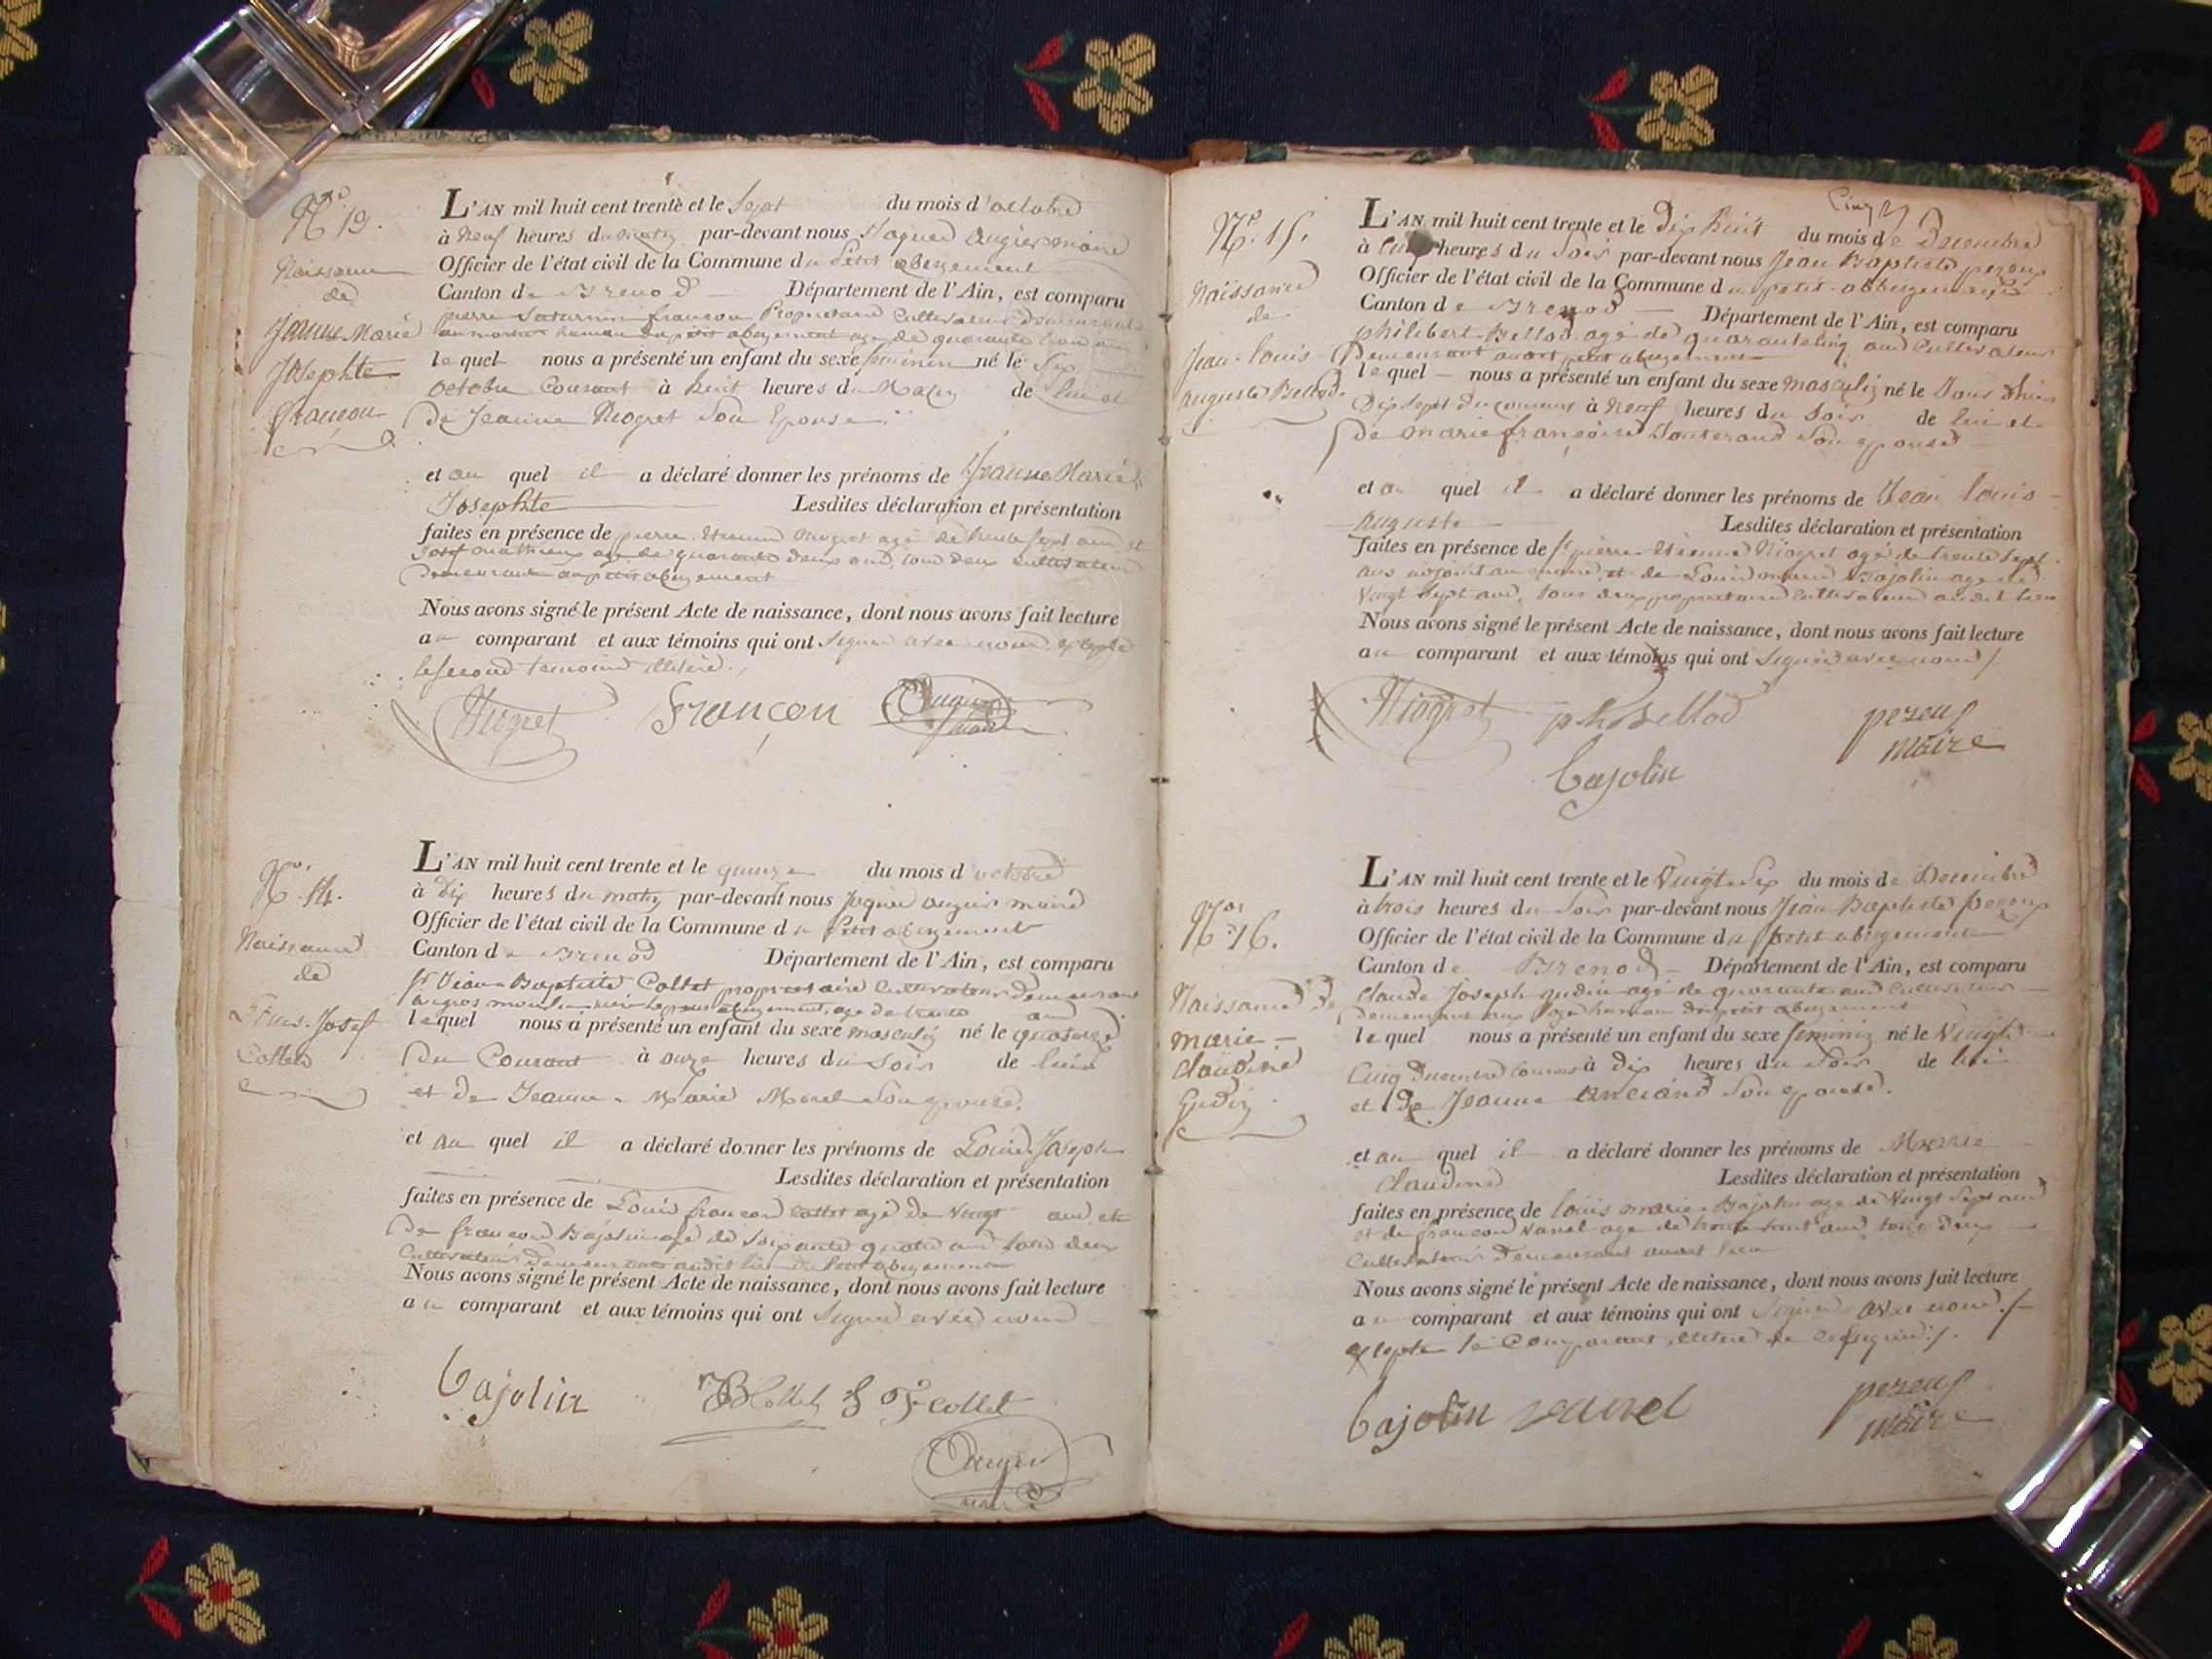 N° 13.
Naissance
de
Jeanne Marie
Josephte
françon
L'AN mil huit cent trente et le Sept du mois d'octobre
à neuf heures du matin par-devant nous Jaques Augier maire
Officier de l'état civil de la Commune du Petit abergement
Canton de Brenod Département de l'Ain, est comparu
pierre Saturnin françon Propriétaire Cultivateur demeurant
hameau du petit abergement agé de quarante
lequel nous a présenté un enfant du sexe feminin né le Six
octobre Courant à huit heures du Matin de lui et
De Jeanne Niogret Son Epouse
et au quel il a déclaré donner les prénoms de Jeanne Marie
Josephte Lesdites déclaration et présentation
faites en présence de pierre Etienne Niogret agé de trente Sept ans et
agé de quarante deux ans, tous deux cultivateurs
Demeurant au petit abergement
Nous avons signé le présent Acte de naissance, dont nous avons fait lecture
au comparant et aux témoins qui ont Signés avec nous excepté
le second temoins illitéré.
Niogret françon Augier
maire
N° 14.
Naissance
de
Louis Josef
Collet
L'AN mil huit cent trente et le quinze du mois d'octobre
à Dix heures du matin par-devant nous Jaques augier maire
Officier de l'état civil de la Commune du Petit abergement
Canton de Brenod Département de l'Ain, est comparu
Sr Jean Baptiste Collet propriétaire Cultivateur demeurant
moulin petit abergement, age de trente ans
lequel nous a présenté un enfant du sexe masculin né le quatorze
Du Courant à onze heures du Soir de lui
et de Jeanne Marie Morel Son epouse.
et au quel il a déclaré donner les prénoms de Louis Joseph
Lesdites déclaration et présentation
faites en présence de Louis françois Collet agé de Vingt ans et
De françois Bajolin agé de Soixante quatre ans tous deux
Cultivateurs Demeurant audit lieu du petit abergement
Nous avons signé le présent Acte de naissance, dont nous avons fait lecture
au comparant et aux témoins qui ont Signés avec nous
bajolin JB Collet F collet
Augier
maire
N° 15.
Naissance
de
Jean-louis
auguste Bellod.
L'AN mil huit cent trente et le Dix huit du mois de Decembre
à heures du Soir par-devant nous Jean Baptiste peroux
Officier de l'état civil de la Commune du petit-abbergement
Canton de Brenod Département de l'Ain, est comparu
philibert Bellod agé de quarante cinq ans Cultivateur
Demeurant audit petit abergement
lequel nous a présenté un enfant du sexe masculin né le Jour d'hier
Dix Sept Du Courant à neuf heures du Soir de lui et
De marie françoise Son epouse
et au quel il a déclaré donner les prénoms de Jean louis
Auguste Lesdites déclaration et présentation
faites en présence de Sr pierre Etienne Niogret agé de trente Sept
ans adjoint au maire, et de Louis marie Bajolin age de
Vingt Sept ans, tous deux propriétaires Cultivateurs audit lieu
Nous avons signé le présent Acte de naissance, dont nous avons fait lecture
au comparant et aux témoins qui ont Signés avec nous
Niogret ph Bellod peroux
maire
bajolin
N° 16.
Naissance de
marie
claudine
Gudin
L'AN mil huit cent trente et le Vingt Six du mois de Decembre
à trois heures du Soir par-devant nous Jean Baptiste peroux
Officier de l'état civil de la Commune du petit abergement
Canton de Brenod Département de l'Ain, est comparu
claude Joseph gudin agé de quarante ans Cultivateur
demeurant hameau du petit abergement
lequel nous a présenté un enfant du sexe feminin né le Vingt
Cinq Decembre courant à dix heures du Soir de lui
et De Jeanne Son epouse.
et au quel il a déclaré donner les prénoms de Marie
claudine Lesdites déclaration et présentation
faites en présence de louis marie Bajolin age de Vingt Sept ans
et de françois Vanel age de trente ans tous deux
Cultivateurs Demeurant audit lieu
Nous avons signé le présent Acte de naissance, dont nous avons fait lecture
au comparant et aux témoins qui ont Signés avec nous
excepté le Comparant illitéré
bajolin vanel peroux
maire